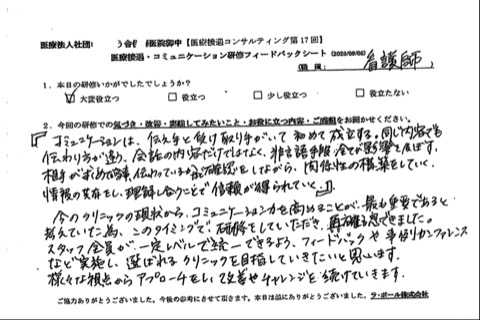 医療法人社団 医院御中【医療接遇コンサルティング第17回】
医療接遇・コミュニケーション研修フィードバックシート (2023/09/06)
(職種: 看護師 )
1．本日の研修いかがでしたでしょうか？
☑ 大変役立つ □ 役立つ □ 少し役立つ □ 役立たない
2．今回の研修での気づき・改善・実践してみたいこと・お役に立つ内容・ご感想をお聞かせください。
『コミュニケーションは、伝え手と受け取り手がいて初めて成立する。同じ内容でも
伝わり方が違う。会話の内容だけではなく、非言語手段全てが影響を及ぼす。
相手がすわる際、伝わっているか確認をしながら、関係性の構築をしていく。
情報の共有をし、理解し合うことで信頼が得られていく。』
今のクリニックの現状から、コミュニケーション力を高めることが、最も重要であると
考えていた為、このタイミングで研修をしていただき、再確認できました。
スタッフ全員が、一定レベルで統一できるよう、フィードバックや事例カンファレンス
など実施し、選ばれるクリニックを目指していきたいと思います。
様々な視点からアプローチをし、改善やチャレンジを続けていきます。
ご協力ありがとうございました。今後の参考にさせて頂きます。本日は誠にありがとうございました。 ラ・ポール株式会社